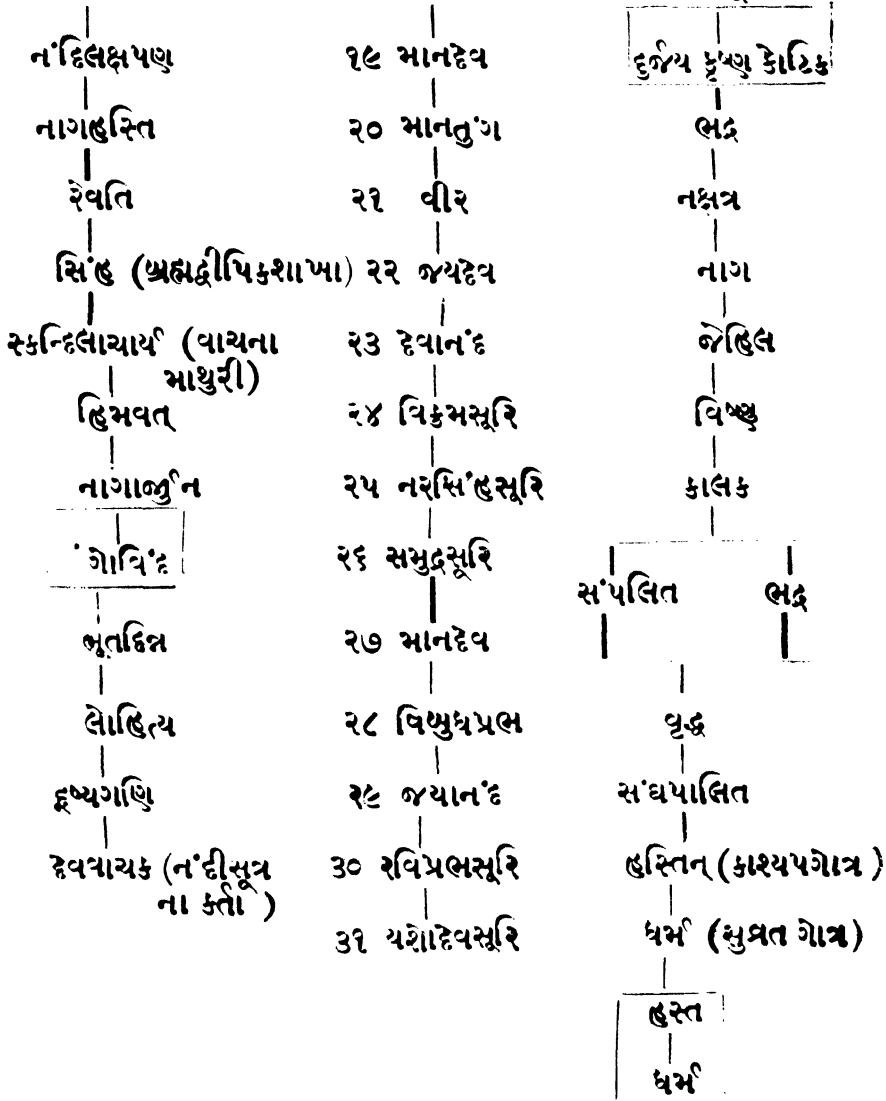 નંદિલક્ષપણ
નાગહસ્તિ
રેવતિ
સિંહ (બ્રહ્મદ્વીપિકશાખા)
સ્કન્દિલાચાર્ય (વાચના
માથુરી)
હિમવત્
નાગાર્જુન
ગોવિંદ
ભૂતદિન્ન
લોહિત્ય
દૂષ્યગણિ
દેવવાચક (નંદીસૂત્ર
ના કર્તા)
૧૯ માનદેવ
૨૦ માનતુંગ
૨૧ વીર
૨૨ જયદેવ
૨૩ દેવાનંદ
૨૪ વિક્રમસૂરિ
૨૫ નરસિંહસૂરિ
૨૬ સમુદ્રસૂરિ
૨૭ માનદેવ
૨૮ વિબુધપ્રભ
૨૯ જયાનંદ
૩૦ રવિપ્રભસૂરિ
૩૧ યશોદેવસૂરિ
દુર્જય કૃષ્ણ કોટિક
ભદ્ર
નક્ષત્ર
નાગ
જેહિલ
વિષ્ણુ
કાલક
સંપલિત ભદ્ર
વૃદ્ધ
સંઘપાલિત
હસ્તિન્ (કાશ્યપગોત્ર)
ધર્મ (સુવ્રત ગોત્ર)
હસ્ત
ધર્મ